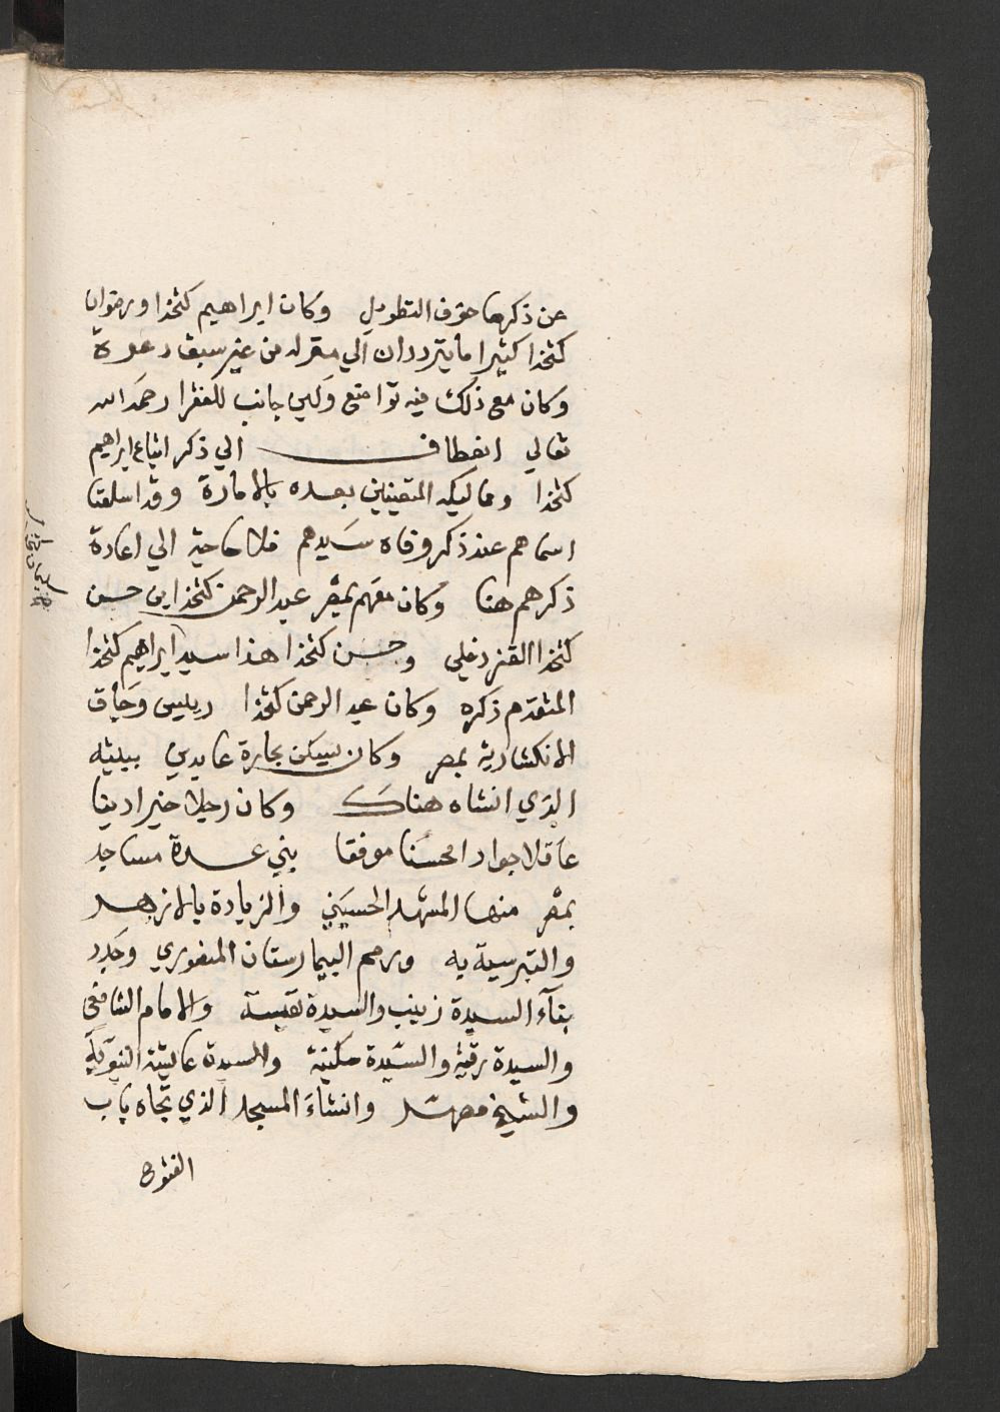 عن ذكرها خوف التطويل وكان ابراهيم كتخدا ورضوان
كتخدا كثيرا ما يترددان الي منزله من غير سبق دعوة
وكان مع ذلك فيه تواضع ولين جانب للفقرا رحمه الله
تعالي انعطاف الي ذكر اتباع ابراهيم
كتخدا ومماليكه المتعينين بعده بالامارة وقد اسلفنا
اسماهم عند ذكر وفاه سيدهم فلا حاجة الي اعادة
ذكرهم هنا وكان معهم بمصر عبد الرحمن كتخدا ابن حسن
كتخدا القزدغلي وحسن كتخدا هذا سيد ابراهيم كتخدا
المتقدم ذكره وكان عبد الرحمن كتخدا رييس وجاق
الانكشارية بمصر وكان يسكن بحارة عابدين ببيته
الذي انشاه هناك وكان رجلا خيرا دينا
عاقلا جوادا محسنا موفقا بني عدة مساجد
بمصر منها المشهد الحسيني والزيادة بالازهر
والتبرسية به ورمم البيمارستان المنصوري وجدد
بنآء السيدة زينب والسيدة نفيسة والامام الشافعي
والسيدة رقية والسيدة سكينة والسيدة عايشة النبوية
والشيخ مطهر وانشاء المسجد الذي تجاه باب
الفتوح